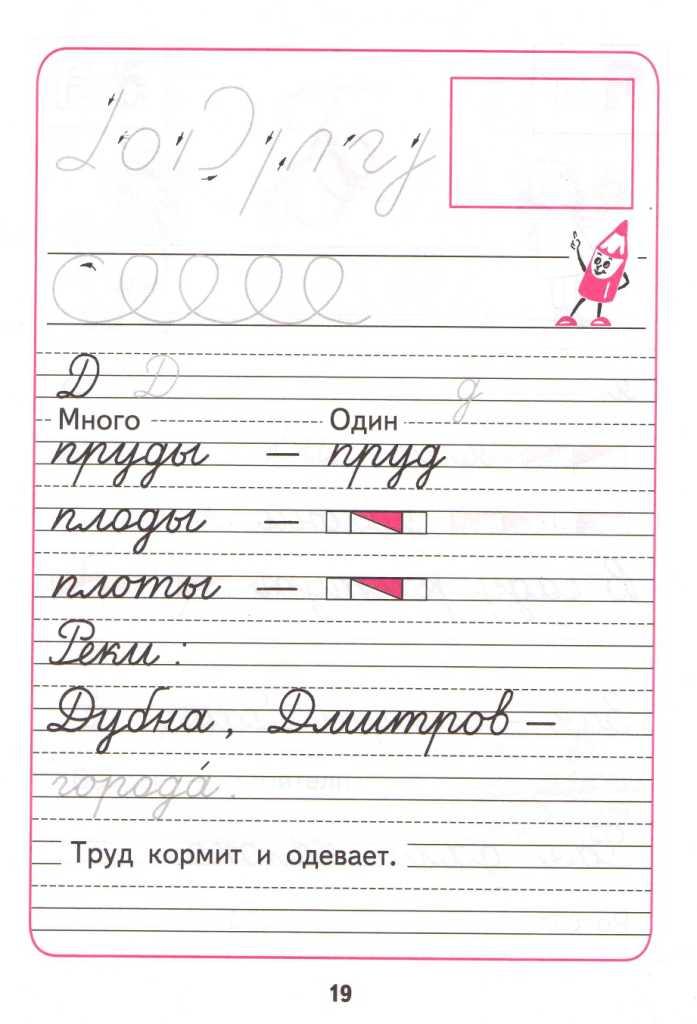 Д Д д
Много Один
пруды — пруд
плоды —
плоты —
Реки:
Дубна, Дмитров —
города́.
Труд кормит и одевает.
19